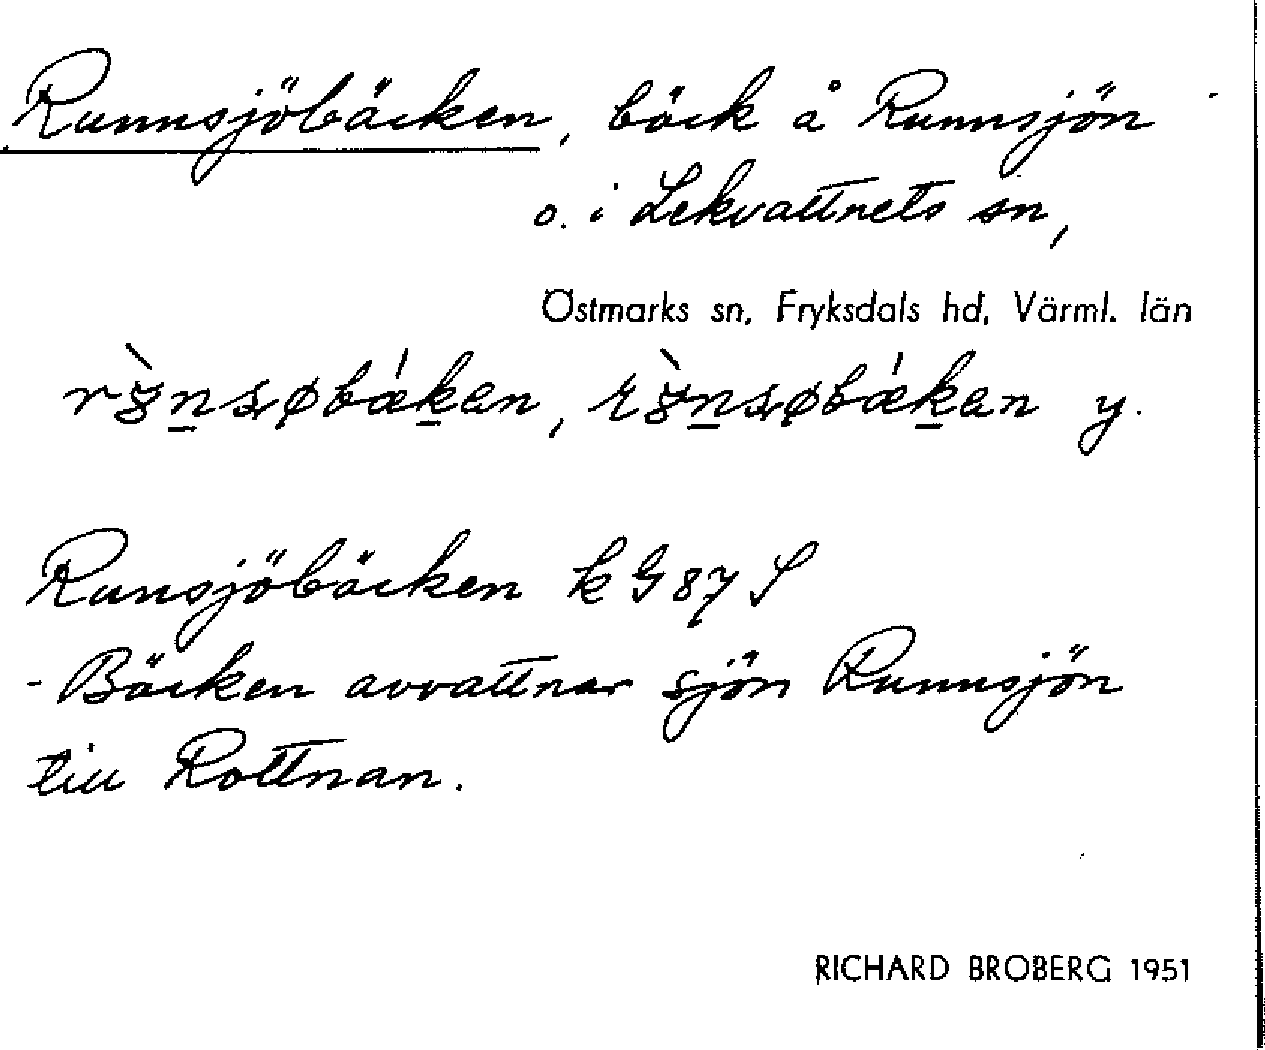 Runnsjöbäcken, bäck å Runnsjön
o. i Lekvattnets sn,
Östmarks sn, Fryksdals hd, Värml. län
Runsjöbäcken k G 87 S
- Bäcken avvattnar sjön Runnsjön
till Rottnan.
RICHARD BROBERG 1951